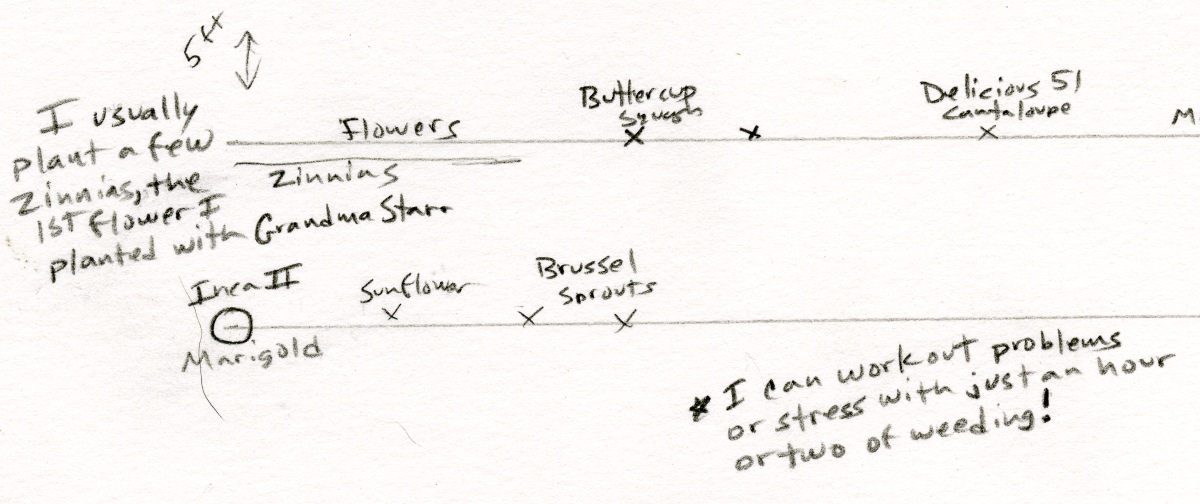 5 ft
I usually
plant a few
Zinnias, the
1ST flower I
planted with Grandma Starr
Flowers
Zinnias
Buttercup
Squash
x
x
Delicious 51
Cantaloupe
x
M
Inca II
Marigold
Sunflower
x
Brussel
Sprouts
x
x
* I can workout problems
or stress with just an hour
or two of weeding!